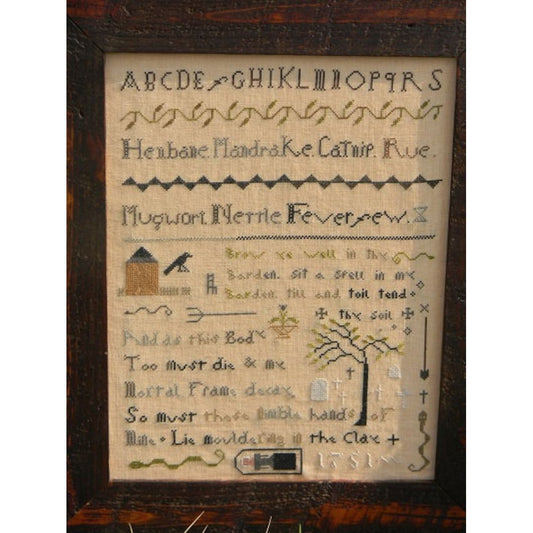 ABCDEFGHIKLMNOPQRS
Henbane. Mandrake. Catnip. Rue.
Mugwort Nettle Feverfew.
Grow ye well in thy
Garden, sit a spell in my
Garden, till and toil tend
thy soil
And as this Body
Too must die & my
Mortal Frame decay
So must these Nimble hands of
Mine Lie mouldering in the Clay
1751